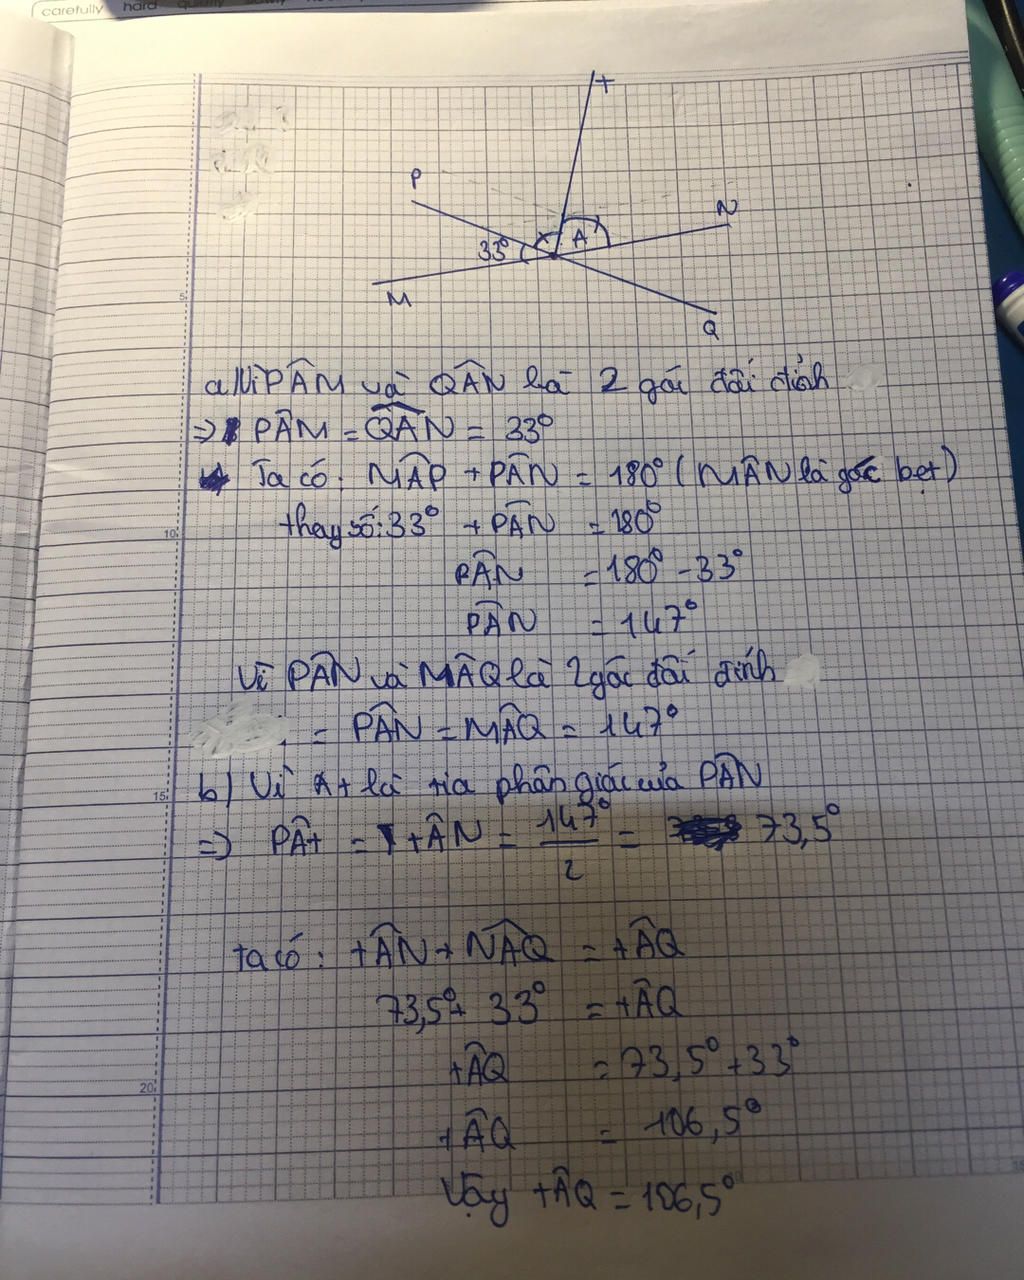 carefully hard quickly slowly
t
P
N
A
33°
M
Q
5
a) Vì PÂM và QÂN là 2 góc đối đỉnh
=> PÂM = QÂN = 33°
Ta có: MÂP + PÂN = 180° (MÂN là góc bẹt)
thay số: 33° + PÂN = 180°
10
PÂN = 180° - 33°
PÂN = 147°
Vì PÂN và MÂQ là 2 góc đối đỉnh
= PÂN = MÂQ = 147°
b) Vì At là tia phân giác của PÂN
15
=> PÂt = tÂN = 147°/2 = 73,5°
ta có: tÂN + NÂQ = tÂQ
73,5° + 33° = tÂQ
tÂQ = 73,5° + 33°
20
tÂQ = 106,5°
Vậy tÂQ = 106,5°